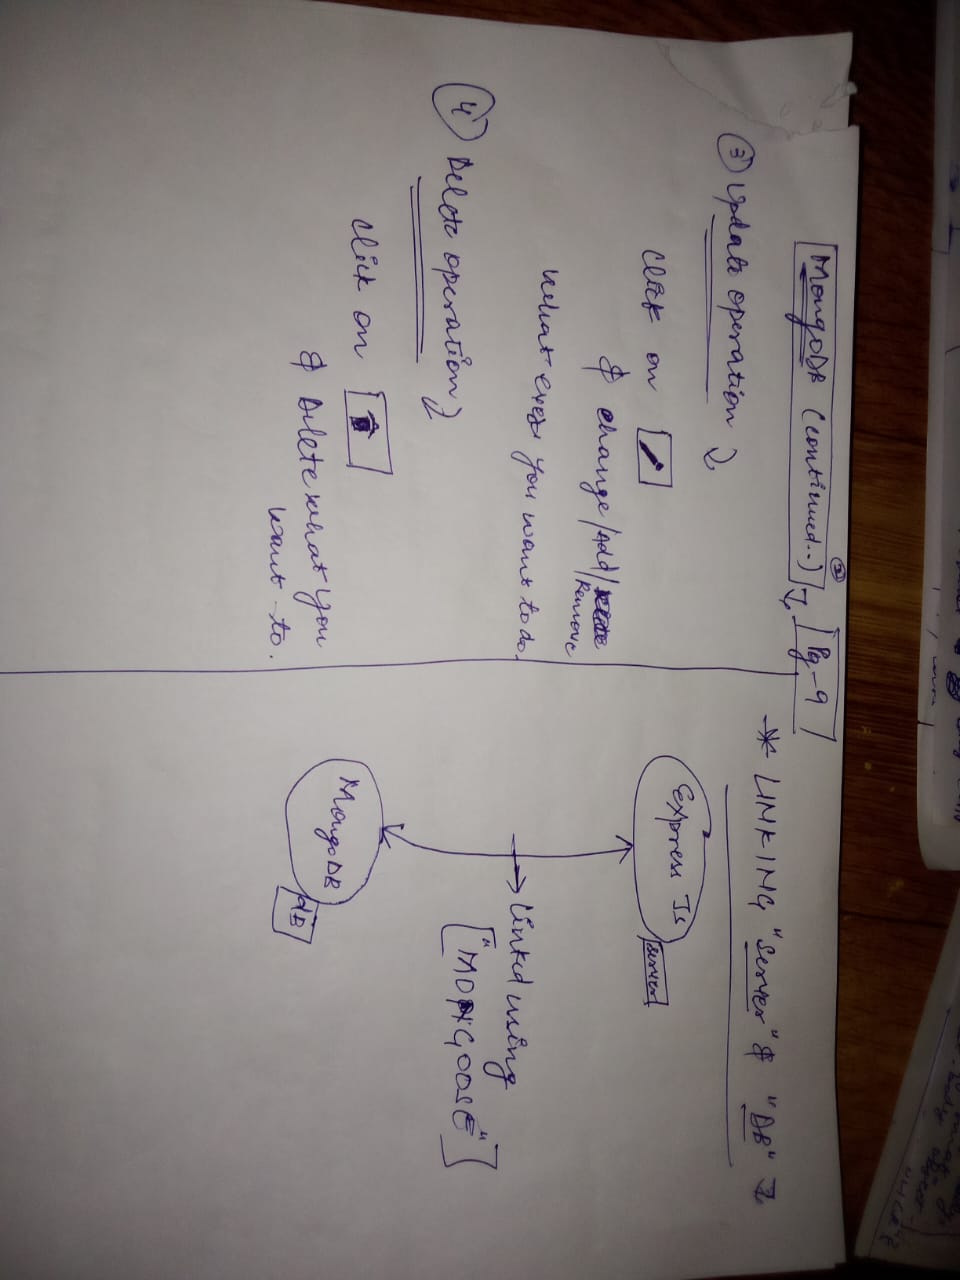 MongoDB (continued..) 2
Pg-9
3 Update operation
Click on
& change/Add/
Remove
what ever you want to do.
4 Delete operation
Click on
& Delete what you
want to.
* LINKING "Server" & "DB"
Express Js
server
Linked using
["MONGOOSE"]
MongoDB
dB